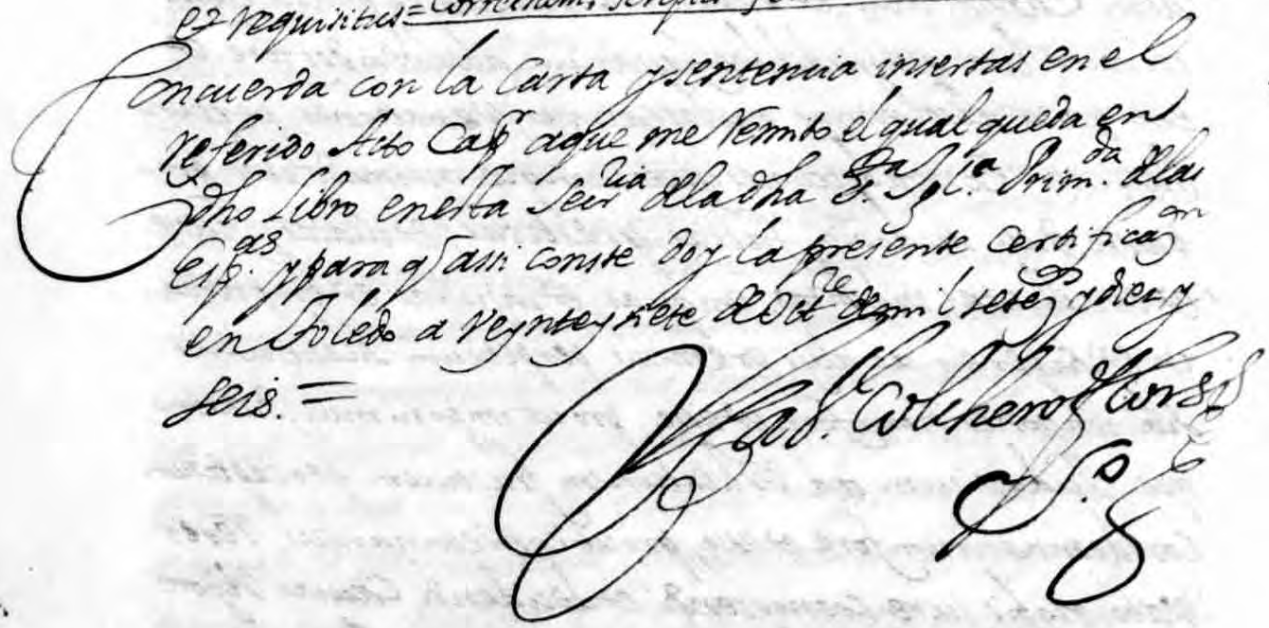 et requisitus=
Concuerda con la Carta y sentencia insertas en el
referido Acto Capr aque me Remito el qual queda en
dho Libro en esta Secria de la dha Sta Igla Primda de las
Espas y para q assi conste doy la presente Certificaon
en Toledo a Veynte y siete de Octre de mil setesos y diez y
seis.=
Colchero
So